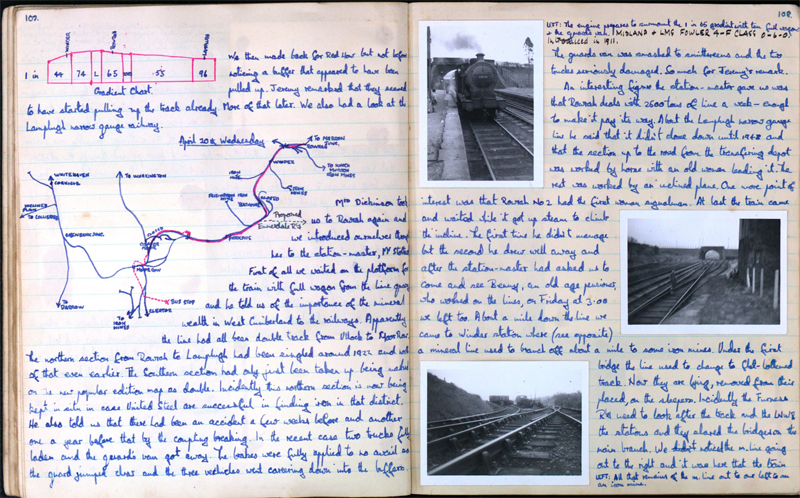 107.
WINDER
ROWRAH
LAMPLUGH
1 in 44 74 L 65 100 .55 96
Gradient Chart.
We then made back for Red How but not before
noticing a buffer that appeared to have been
pulled up. Jeremy remarked that they seemed
to have started pulling up the track already. More of that later. We also had a look at the
Lamplugh narrow gauge railway.
April 20th Wednesday
TO MARRON JUNC.
ROWRAH
WINDER
IRON MINES
WHITEHAVEN
CORKICKLE
TO WORKINGTON
TO COLLIERIES
MOOR ROW
TO BARROW
TO IRON MINES
EGREMONT
BUS STOP
Proposed
Ennerdale Rly
Mrs Dickinson took
us to Rowrah again and
we introduced ourselves through
her to the station-master, Mr States
First of all we waited on the platform for
the train with full wagons from the lime quarry
and he told us of the importance of the mineral
wealth in West Cumberland to the railways. Apparently
the line had all been double track from Ullock to Moor Row.
The northern section from Rowrah to Lamplugh had been singled around 1922 and west
of that even earlier. The Southern section had only just been taken up being marked
on the new popular edition map as double. Incidently this northern section is now being
kept in situ in case United Steel are successful in finding iron in that district.
He also told us that there had been an accident a few weeks before and another
one a year before that by the coupling breaking. In the recent case two trucks fully
laden and the guards van got away. The brakes were fully applied to no avail as
the guard jumped clear and the three vehicles went careering down into the buffers.
108.
LEFT: The engine prepares to surmount the 1 in 65 gradient with ten full wagons
+ the guards van. MIDLAND & LMS FOWLER 4-F CLASS 0-6-0.
Introduced in 1911.
The guards van was smashed to smithereens and the two
trucks seriously damaged. So much for Jeremy's remark.
An interesting figure the station-master gave us was
that Rowrah deals with 2500 tons of lime a week - enough
to make it pay its way. About the Lamplugh narrow gauge
line he said that it didn't close down until 1948 and
that the section up to the road from the transferring depot
was worked by horse with an old woman leading it. The
rest was worked by an inclined plane. One more point of
interest was that Rowrah No 2 had the first woman signalman. At last the train came
and waited while it got up steam to climb
the incline. The first time he didn't manage
but the second he drew well away and
after the station-master had asked us to
come and see Benny, an old age pensioner,
who worked on the lines, on Friday at 3:00
we left too. About a mile down the line we
came to Winder station where (see opposite)
a mineral line used to branch off about a mile to some iron mines. Under the first
bridge the line used to change to flat-bottomed
track. Now they are being removed from their
placed, on the sleepers. Incidently the Furness
Rly used to look after the track and the LNWR
the stations and they shared the bridges on the
main branch. We didn't notice the m. line going
out to the right and it was here that the train
LEFT: All that remains of the m. line out to one left to an iron mine.